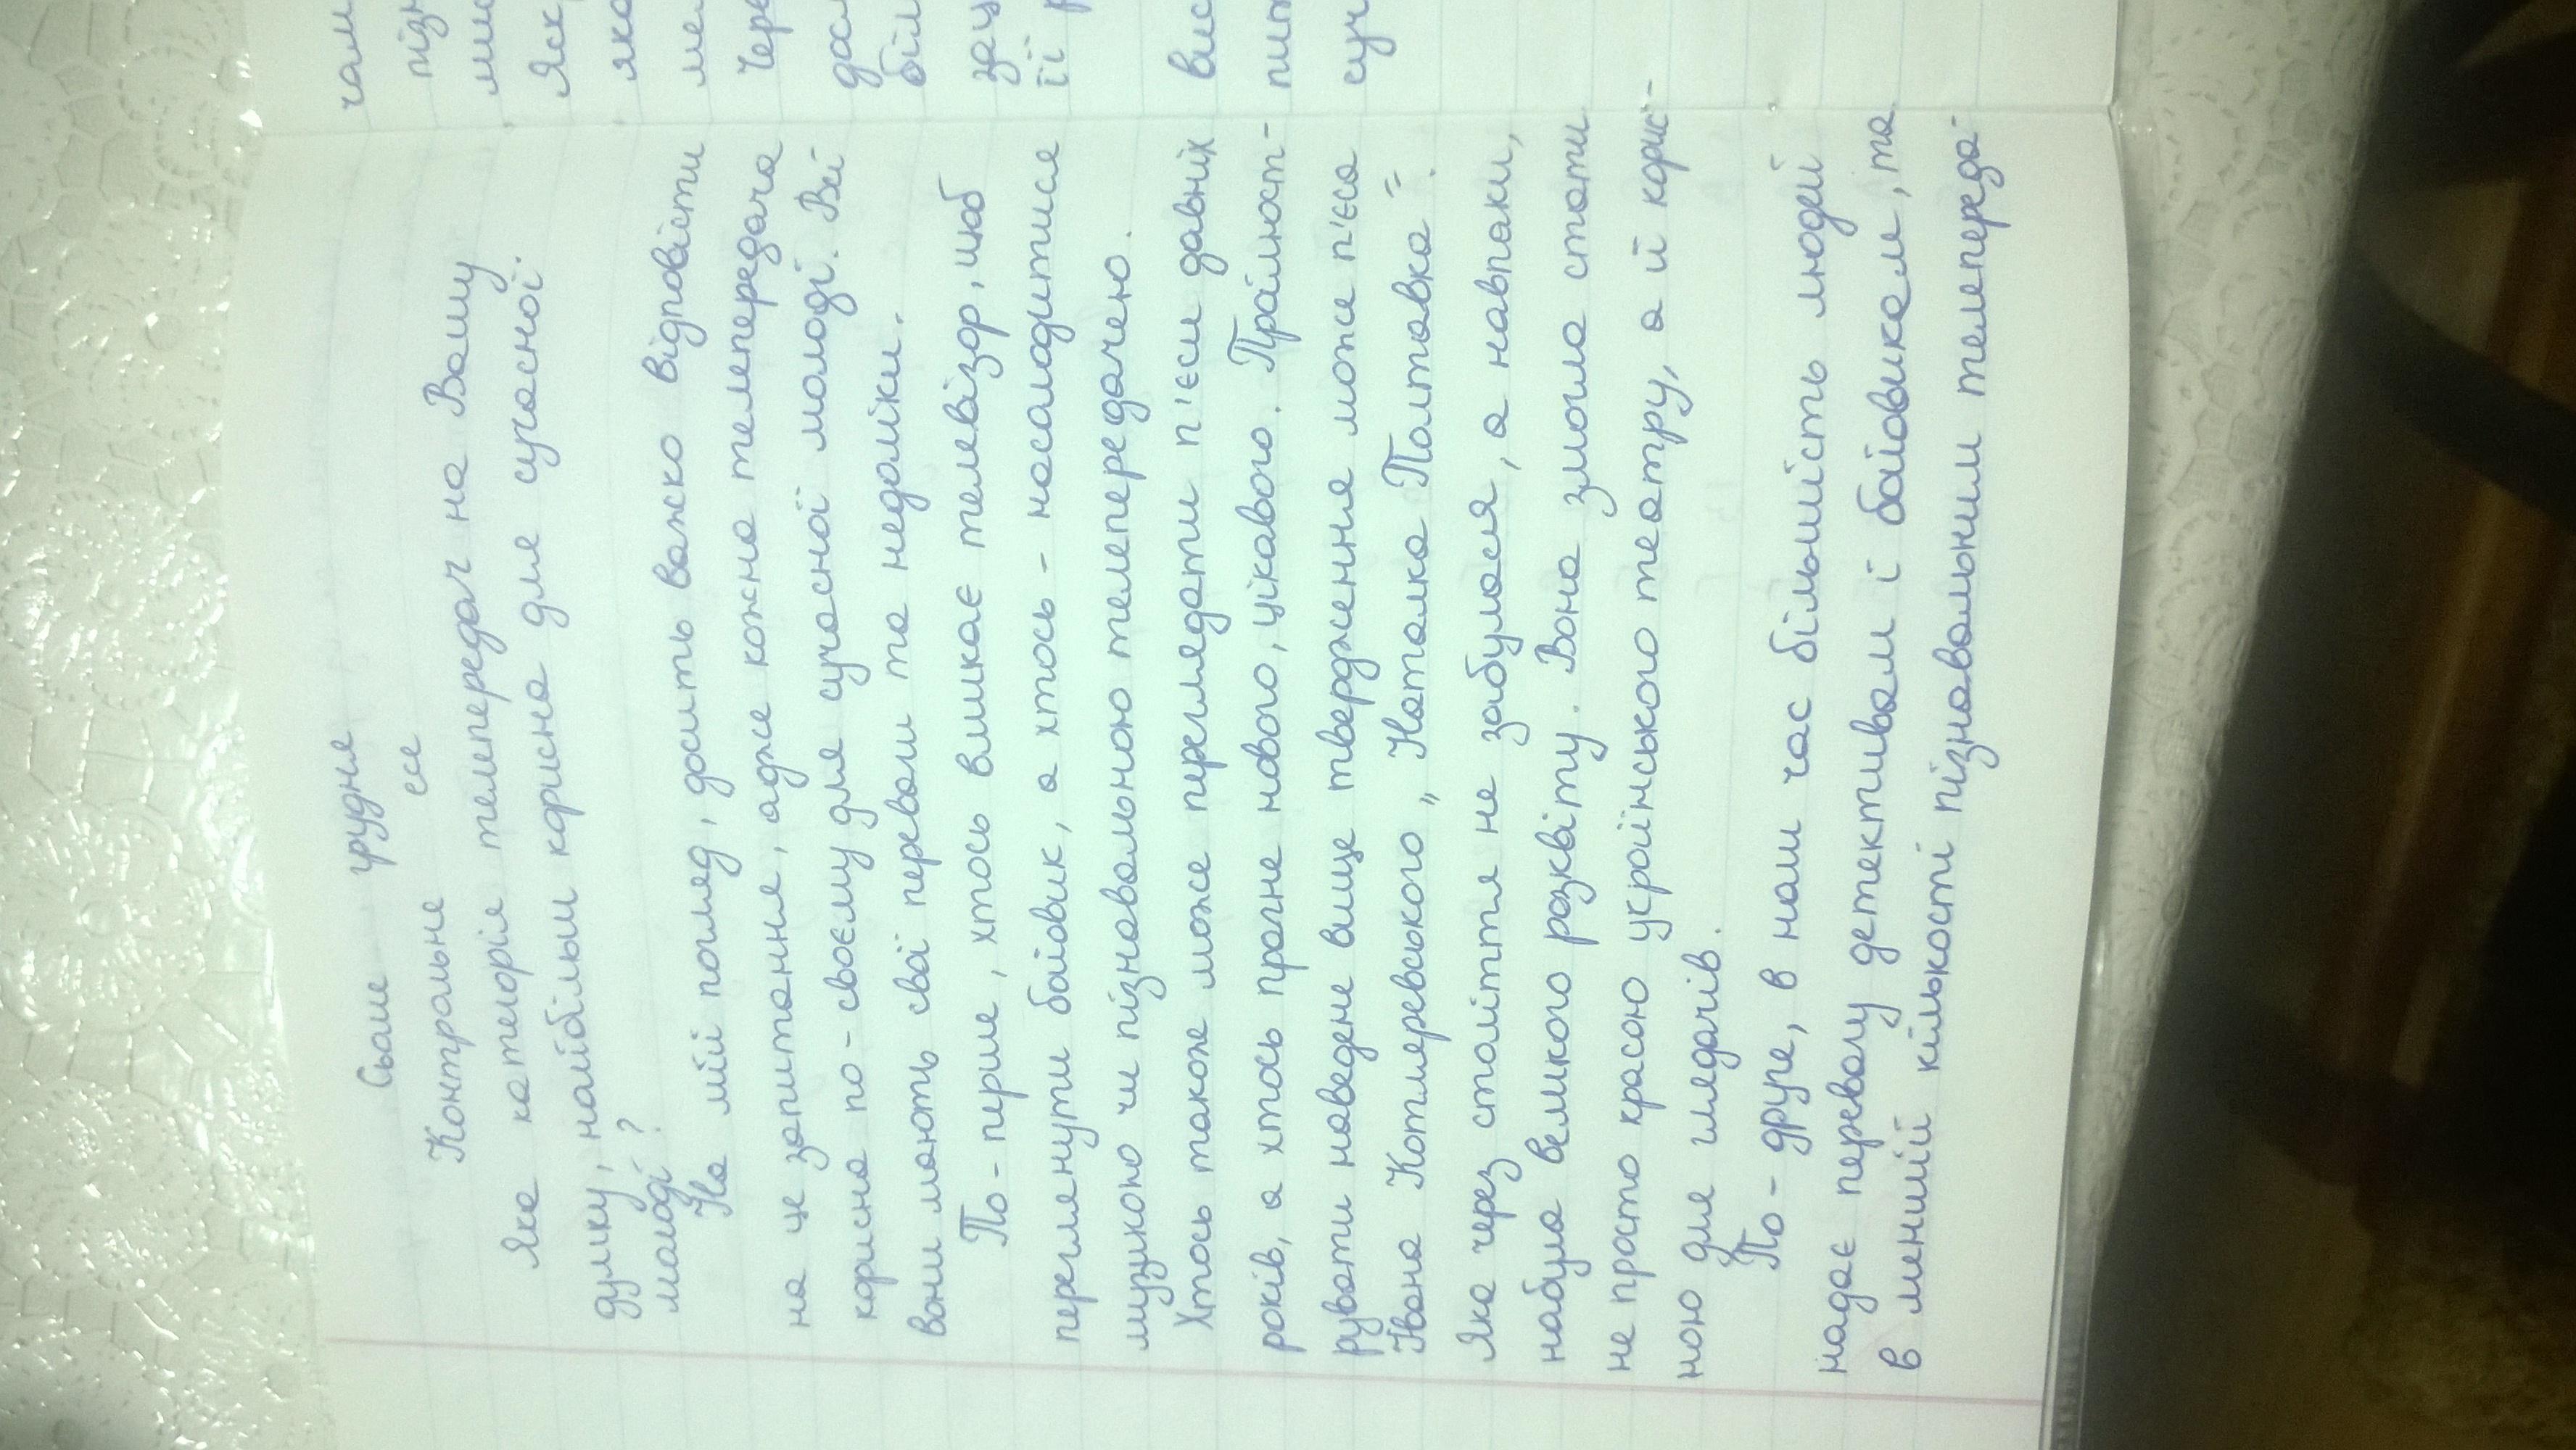 Сьоме грудня
Контрольне есе
Яка категорія телепередач на Вашу
думку, найбільш корисна для сучасної
молоді?
На мій погляд, досить важко відповісти
на це запитання, адже кожна телепередача
корисна по-своєму для сучасної молоді. Всі
вони мають свої переваги та недоліки.
По-перше, хтось вмикає телевізор, щоб
переглянути бойовик, а хтось - насолодитися
музикою чи пізнавальною телепередачею.
Хтось також може переглядати п'єси давніх
років, а хтось прагне нового, цікавого. Проілюст-
рувати наведене вище твердження може п'єса
Івана Котляревського „Наталка Полтавка".
Яка через століття не забулася, а навпаки,
набула великого розквіту. Вона змогла стати
не просто красою українського театру, а й корис-
ною для глядачів.
По-друге, в наш час більшість людей
надає перевагу детективам і бойовикам, та
в меншій кількості пізнавальним телепереда-
чам
пізн
Яск
яка
Чере
біл
її
вис
суч